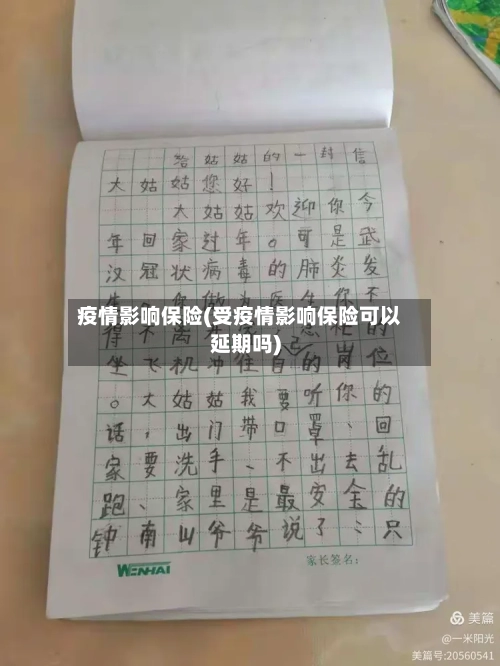 给姑姑的一封信
大姑姑您好！
大姑姑欢迎你今
年回家过年。可是武
汉冠状病毒的肺炎发
疫情影响保险(受疫情影响保险可以
延期吗)
坐飞机冲往自己的岗位
。大姑姑我要听你的
话，出门带口罩、回
家要洗手、不出去乱
跑、家里是最安全的
钟南山爷爷说了：只
WENHAI
家长签名：
美篇
@一米阳光
美篇号:20560541